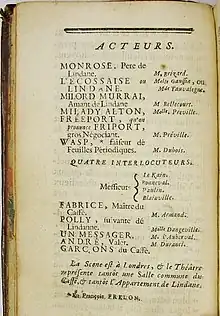 ACTEURS.
MONROSE, Pere de
Lindane. M. Brizard.
L'ECOSSAISE ou Melle Gaussin, ou
LINDANE.
MILORD MURRAI,
Amant de Lindane M. Bellecourt.
MILADY ALTON, Melle. Préville.
FREEPORT, qu'on
prononce FRIPORT,
gros Négociant. M. Préville.
WASP, * faiseur de
Feuilles Périodiques. M. Dubois.
QUATRE INTERLOCUTEURS.
Messieurs
Le Kain.
Bonneval.
Paulin.
Blainville.
FABRICE, Maître du
Caffé. M. Armand.
POLLY, suivante de
Lindane. Melle Dangeville.
UN MESSAGER. M. Dauberval.
ANDRÉ, Valet. M. Durancé.
GARÇONS du Caffé.
La Scene est à Londres, & le Théâtre
représente tantôt une Salle commune du
Caffé, & tantôt l'Apartement de Lindane.
* En François, FRELON.